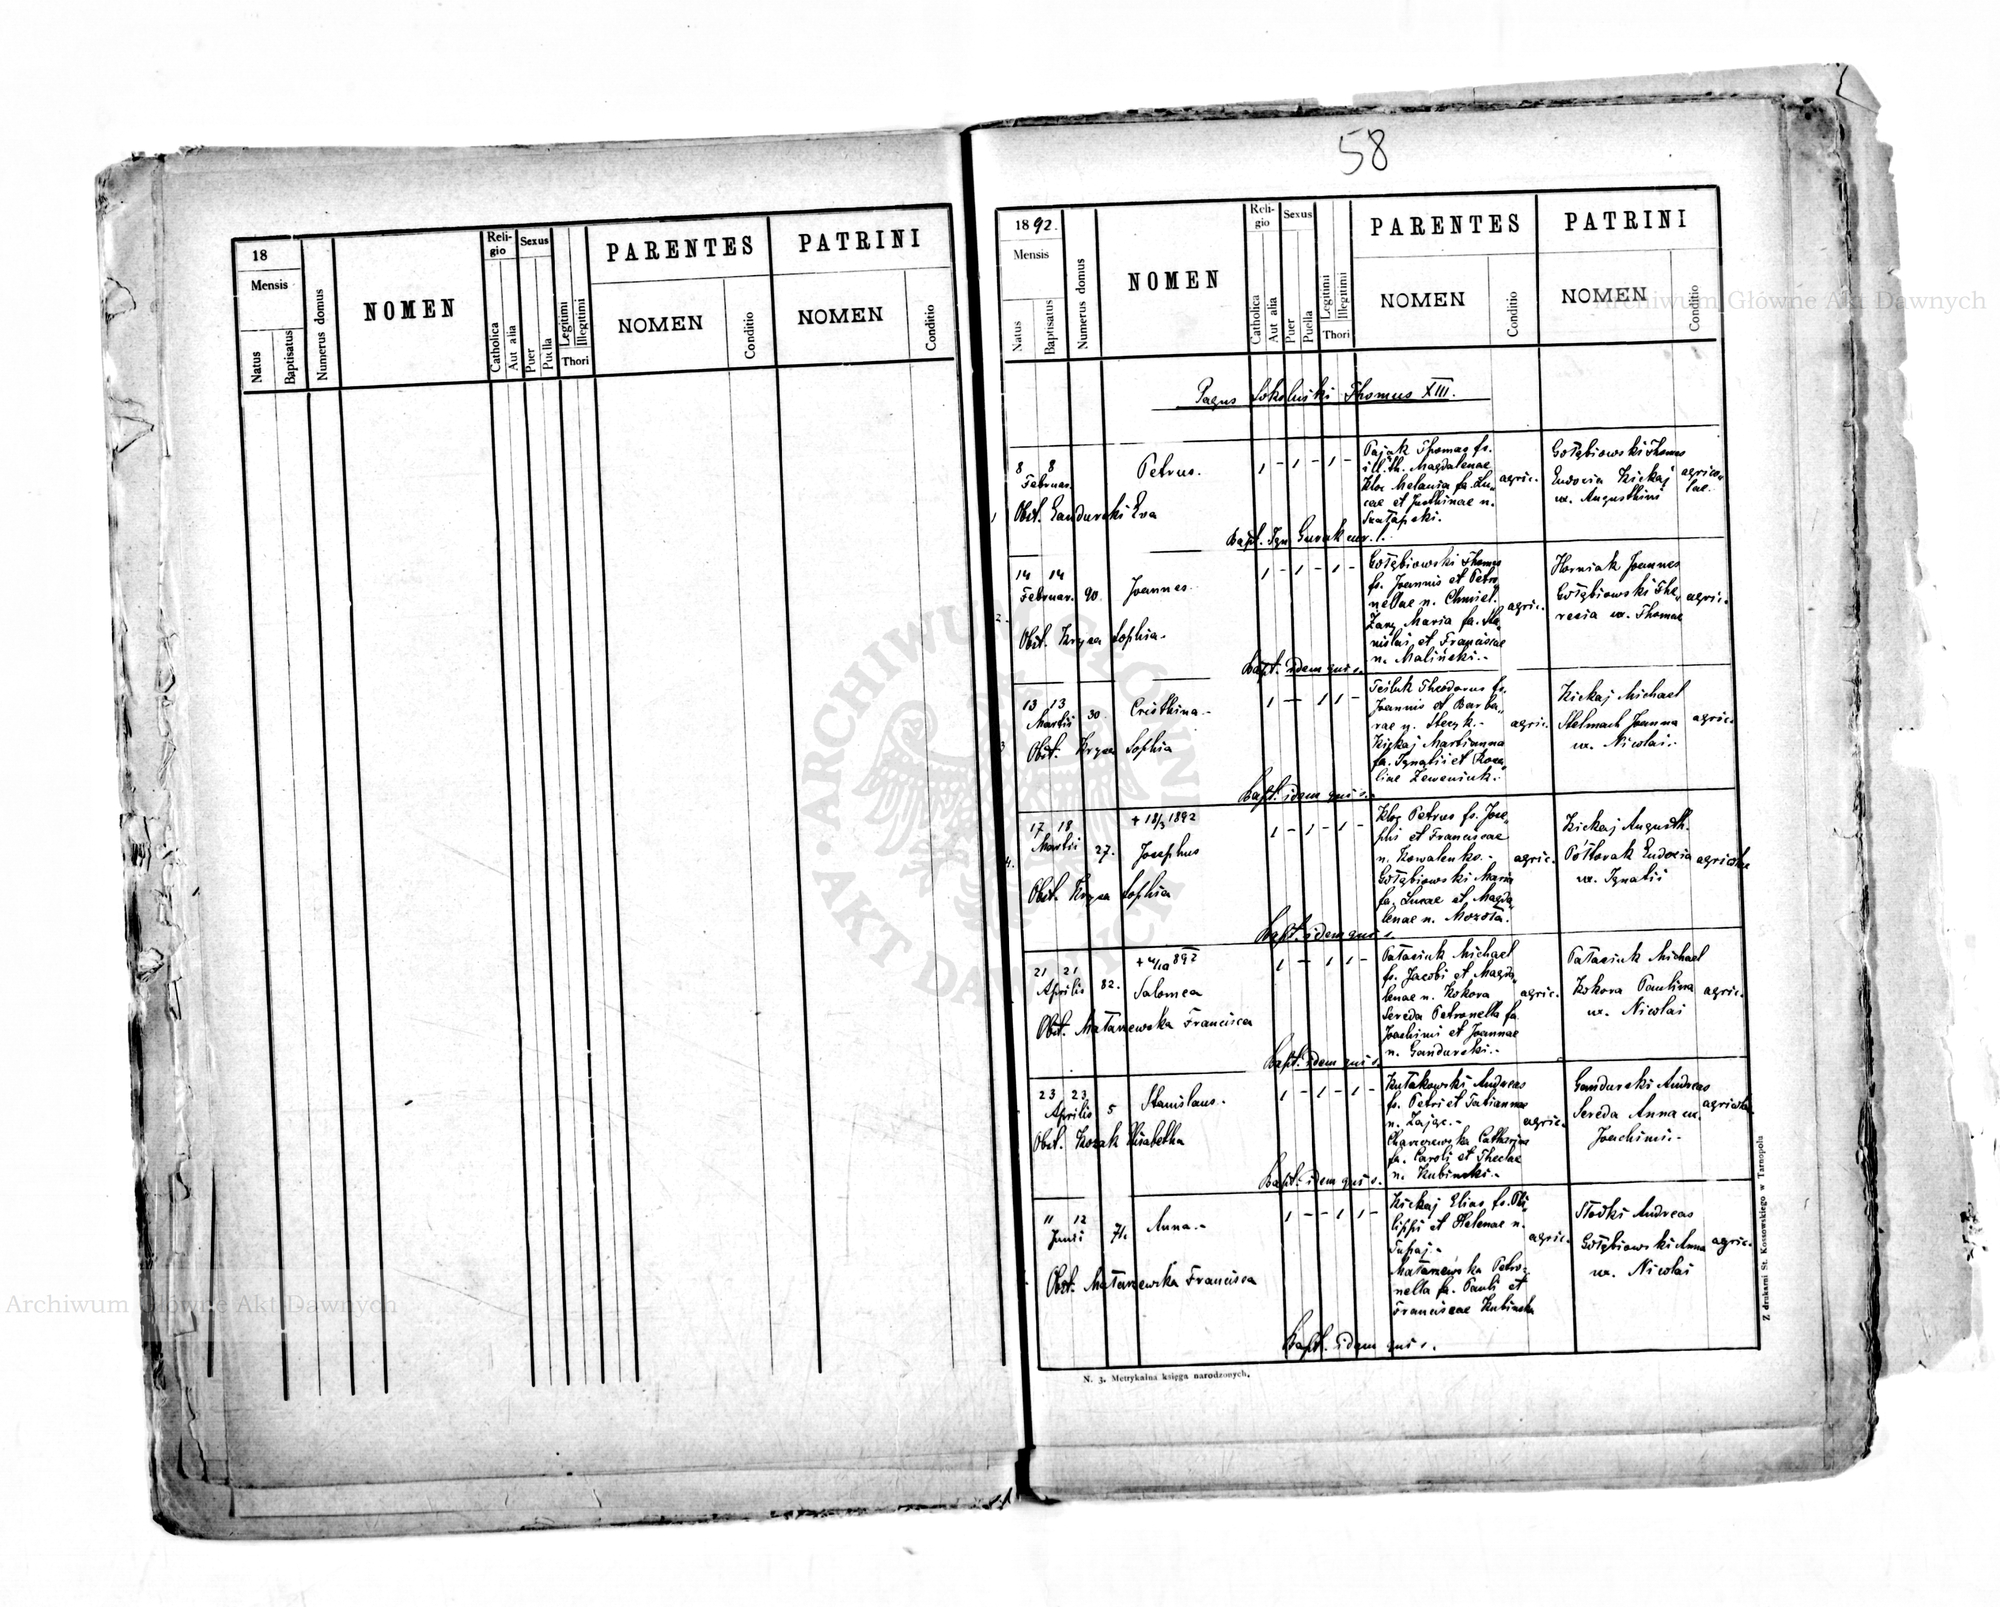 58
18
Mensis
Natus
Baptisatus
Numerus domus
NOMEN
Religio
Catholica
Aut alia
Sexus
Puer
Puella
Legitimi
Illegitimi
Thori
PARENTES
NOMEN
Conditio
PATRINI
NOMEN
Conditio
1892.
Mensis
Natus
Baptisatus
Numerus domus
NOMEN
Religio
Catholica
Aut alia
Sexus
Puer
Puella
Legitimi
Illegitimi
Thori
PARENTES
NOMEN
Conditio
PATRINI
NOMEN
Conditio
Pagus Thomus XIII.
1
8 8
Februar.
Petrus.
1 - 1 - 1 -
Pająk Thomas fs.
illth. Magdalenae
Kloc Melania fa. Lu-
cae et Justhinae n.
agric.
Gołębiowski Thomas
Eudocia Kickaj
ux. Augusthini
agrico-
lae.
Obst. Gandurski Eva
Bapt. Ign. Gurak
2.
14 14
Februar. 90.
Joannes.
1 - 1 - 1 -
Gołębiowski Thomas
fs. Joannis et Petro
nellae n. Chmiel.
Maria fa. Sta-
nislai et Franciscae
n. Maliński.-
agric.
Horniak Joannes
Gołębiowski The-
resia ux. Thomae
agric.
Obst. Krysa Sophia.
Bapt. idem qui s.
3
13 13
Martii 30.
Cristhina.-
1 - 1 1 -
Teśluk Theodorus fs.
Joannis et Barba-
rae n. Stecyk.-
Kickaj Marianna
fa. Ignatii et Rosa-
liae
agric.
Kickaj Michael
Stelmach Joanna
ux. Nicolai.-
agric.
Obst. Krysa Sophia
Bapt. idem qui s.
4.
17 18
Martii 27.
+ 18/3 1892
Josephus
1 - 1 - 1 -
Kloc Petrus fs. Jose-
phi et Franciscae
n. Kowalenko.-
Gołębiowski Maria
fa. Lucae et Magda-
lenae n. Mozoła.
agric.
Kickaj Augusth.
Półtorak Eudocia
ux. Ignatii
agricolae
Obst. Krysa Sophia
Bapt. idem qui s.
21 21
Aprilis 82.
Salomea
1 - 1 1 -
Pataciuk Michael
fs. Jacobi et Magda-
lenae n. Kokora
Sereda Petronella fa.
Joachimi et Joannae
n. Gandurski.-
agric.
Pataciuk Michael
Kokora Paulina
ux. Nicolai
agric.
Obst. Matarzewska Francisca
Bapt. idem qui s.
23 23
Aprilis 5
Stanislaus.
1 - 1 - 1 -
Kułakowski Andreas
fs. Petri et Tatiannae
n. Zając.-
Catharina
fa. Caroli et Theclae
n. Kubinski.-
agric.
Gandurski Andreas
Sereda Anna ux.
Joachimi.-
agricolae
Obst. Kozak Elisabetha
Bapt. idem qui s.
11 12
Junii 71.
Anna.-
1 - - 1 1 -
Kickaj Elias fs. Phi-
lippi et Helenae n.
Tupaj.-
Matarzewska Petro-
nella fa. Pauli et
Franciscae Kubinska
agric.
Słodki Andreas
Gołębiowski Anna
ux. Nicolai
agric.
Obst. Matarzewska Francisca
Bapt. idem qui s.
N. 3. Metrykalna księga narodzonych.
Z drukarni St. Kossowskiego w Tarnopolu
Archiwum Główne Akt Dawnych
Archiwum Główne Akt Dawnych
ARCHIWUM GŁÓWNE AKT DAWNYCH